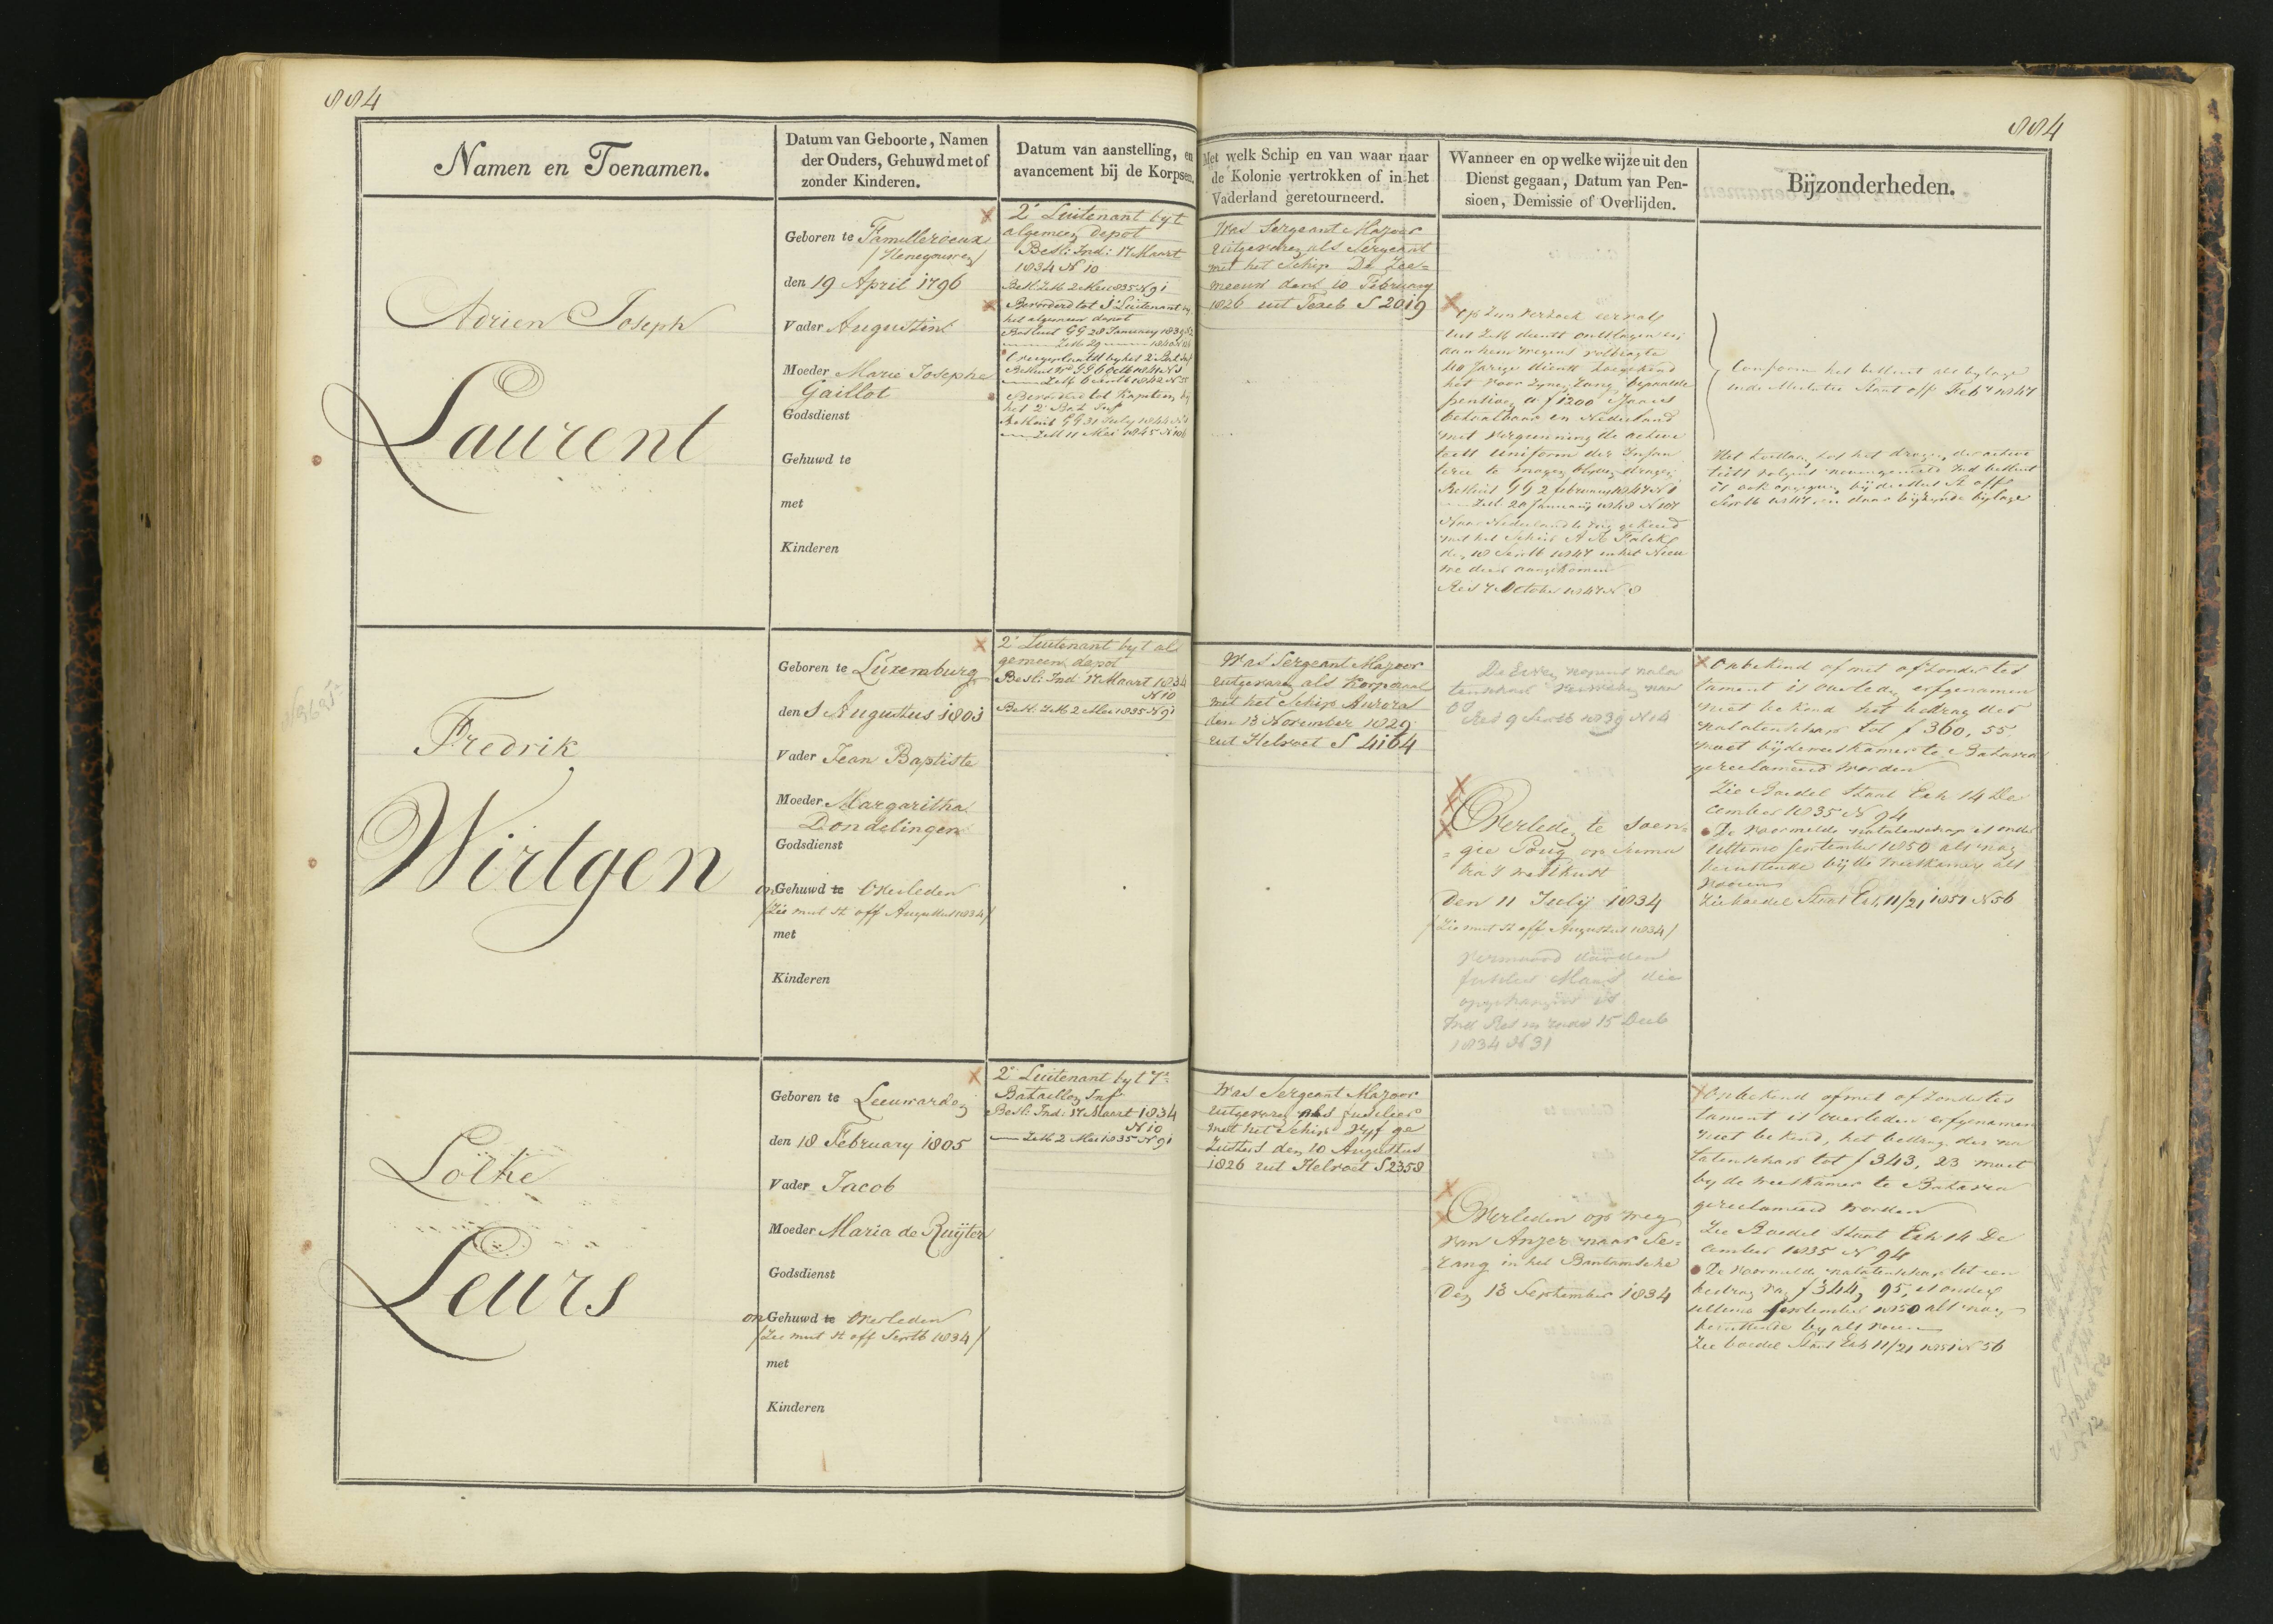 884
884
Namen en Toenamen.
Datum van Geboorte, Namen
der Ouders, Gehuwd met of
zonder Kinderen.
Datum van aanstelling, en
avancement bij de Korpsen.
Met welk Schip en van waar naar
de Kolonie vertrokken of in het
Vaderland geretourneerd.
Wanneer en op welke wijze uit den
Dienst gegaan, Datum van Pen-
sioen, Demissie of Overlijden.
Bijzonderheden.
Adrien Joseph
Laurent
Geboren te Familleroeux
/Henegouwen/
den 19 April 1796
Vader Augustin
Moeder Marie Josephe
Gaillot
Godsdienst
Gehuwd te
met
Kinderen
2e Luitenant by t
algemeen depot
Besl: Ind: 17 Maart
1834 N 10
Besl. ZM 2 Mei 1835 N 91
Bevorderd tot 1e Luitenant
het algemeen depot
Besluit GG 28 January 1839
Overgeplaatst by het 2e Bat Inf
Bevorderd tot Kapitein bij
het 2e Bat Inf
Besluit GG 31 July 1844 N
ZM 11 Mei 1845 N 106
Was Sergeant Majoor
uitgevaren als Sergeant
met het Schip De Zee=
meeuw den 10 February
1826 uit Texel S 2019
Op zyn verzoek eervol
uit ZM dienst ontslagen en
aan hem wegens volbragte
40 jarige dienst toegekend
het voor zynen rang bepaalde
pensioen a f 1200 's Jaars
betaalbaar in Nederland
met vergunning de active
teits uniform der Infan
terie te mogen blyven dragen
Besluit GG 2 february 1847 N 1
ZM 20 January 1848 N 107
Naar Nederland te rug gekeerd
met het Schip A R Falck
den 18 Septb 1847 in het Nieu
we diep aangekomen
Res 7 October 1847 N 8
Conform het besluit als bylage
in de Mutatie Staat off Feb 1847
Het verlaan tot het dragen der activi
teits volgens nevengemeld Ind besluit
is ook opgegeven bij de Mut St off
Septb 1847 en daar bijzynde bylage
Fredrik
Wirtgen
Geboren te Luxemburg
den 1 Augustus 1803
Vader Jean Baptiste
Moeder Margaritha
Dondelingen
Godsdienst
on Gehuwd te Overleden
/Zie mut st off Augustus 1834/
met
Kinderen
2e Luitenant by t al
gemeen depot
Besl: Ind 17 Maart 1834
N 10
Besl. ZM 2 Mei 1835 N 91
Was Sergeant Majoor
uitgevaren als Korporaal
met het Schip Aurora
den 13 November 1829
uit Helvoet S 4164
Res 9 Septb 1839 N 14
Overleden te Soen=
=gie Poug op Suma
tra's westkust
Den 11 July 1834
/Zie mut st off Augustus 1834/
Vermoord door den
fuselier Mans die
opgehangen is
Ind Res in rade 15 Decb
1834 N 31
Onbekend of met of zonder tes
tament is overleden erfgenamen
niet bekend het bedrag der
nalatenschap tot f 360,55
moet bij de weeskamer te Batavia
gereclameerd worden
Zie Boedel Staat Exh 14 De
cember 1835 N 94
De voormelde nalatenschap is onder
ultimo September 1850 als nog
berustende bij de weeskamer als
voren
Zie boedel Staat Exh 11/21 1851 N 56
Lolke
Leurs
Geboren te Leeuwarden
den 18 February 1805
Vader Jacob
Moeder Maria de Ruijter
Godsdienst
on Gehuwd te Overleden
/Zie mut st off Septb 1834/
met
Kinderen
2e Luitenant by t 7e
Bataillon Inf
Besl: Ind: 17 Maart 1834
N 10
ZM 2 Mei 1835 N 91
Was Sergeant Majoor
uitgevaren als fuselier
met het Schip Vyf ge
zusters den 10 Augustus
1826 uit Helvoet S 2358
Overleden op weg
van Anjer naar Se=
rang in het Bantamsche
Den 13 September 1834
Onbekend of met of zonder tes
tament is overleden erfgenamen
niet bekend, het bedrag der na
latenschap tot f 343,23 moet
by de weeskamer te Batavia
gereclameerd worden
Zie Boedel Staat Exh 14 De
cember 1835 N 94
De voormelde nalatenschap tot een
bedrag van f 344,95 is onder
ultimo September 1850 als nog
berustende by als voren
Zie boedel Staat Exh 11/21 1851 N 56